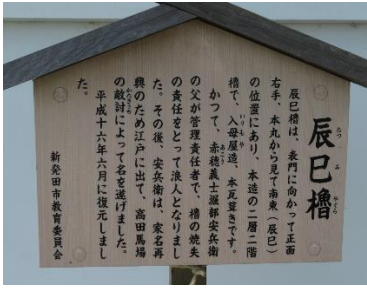 辰巳櫓
辰巳櫓は、表門に向かって正面
右手、本丸から見て南東（辰巳）
の位置にあり、木造の二層二階
櫓で、入母屋造、本瓦葺きです。
かつて、赤穂義士堀部安兵衛
の父が管理責任者で、櫓の焼失
の責任をとって浪人となりまし
た。その後、安兵衛は、家名再
興のため江戸に出て、高田馬場
の敵討によって名を遂げました。
平成十六年六月に復元しまし
た。
新発田市教育委員会